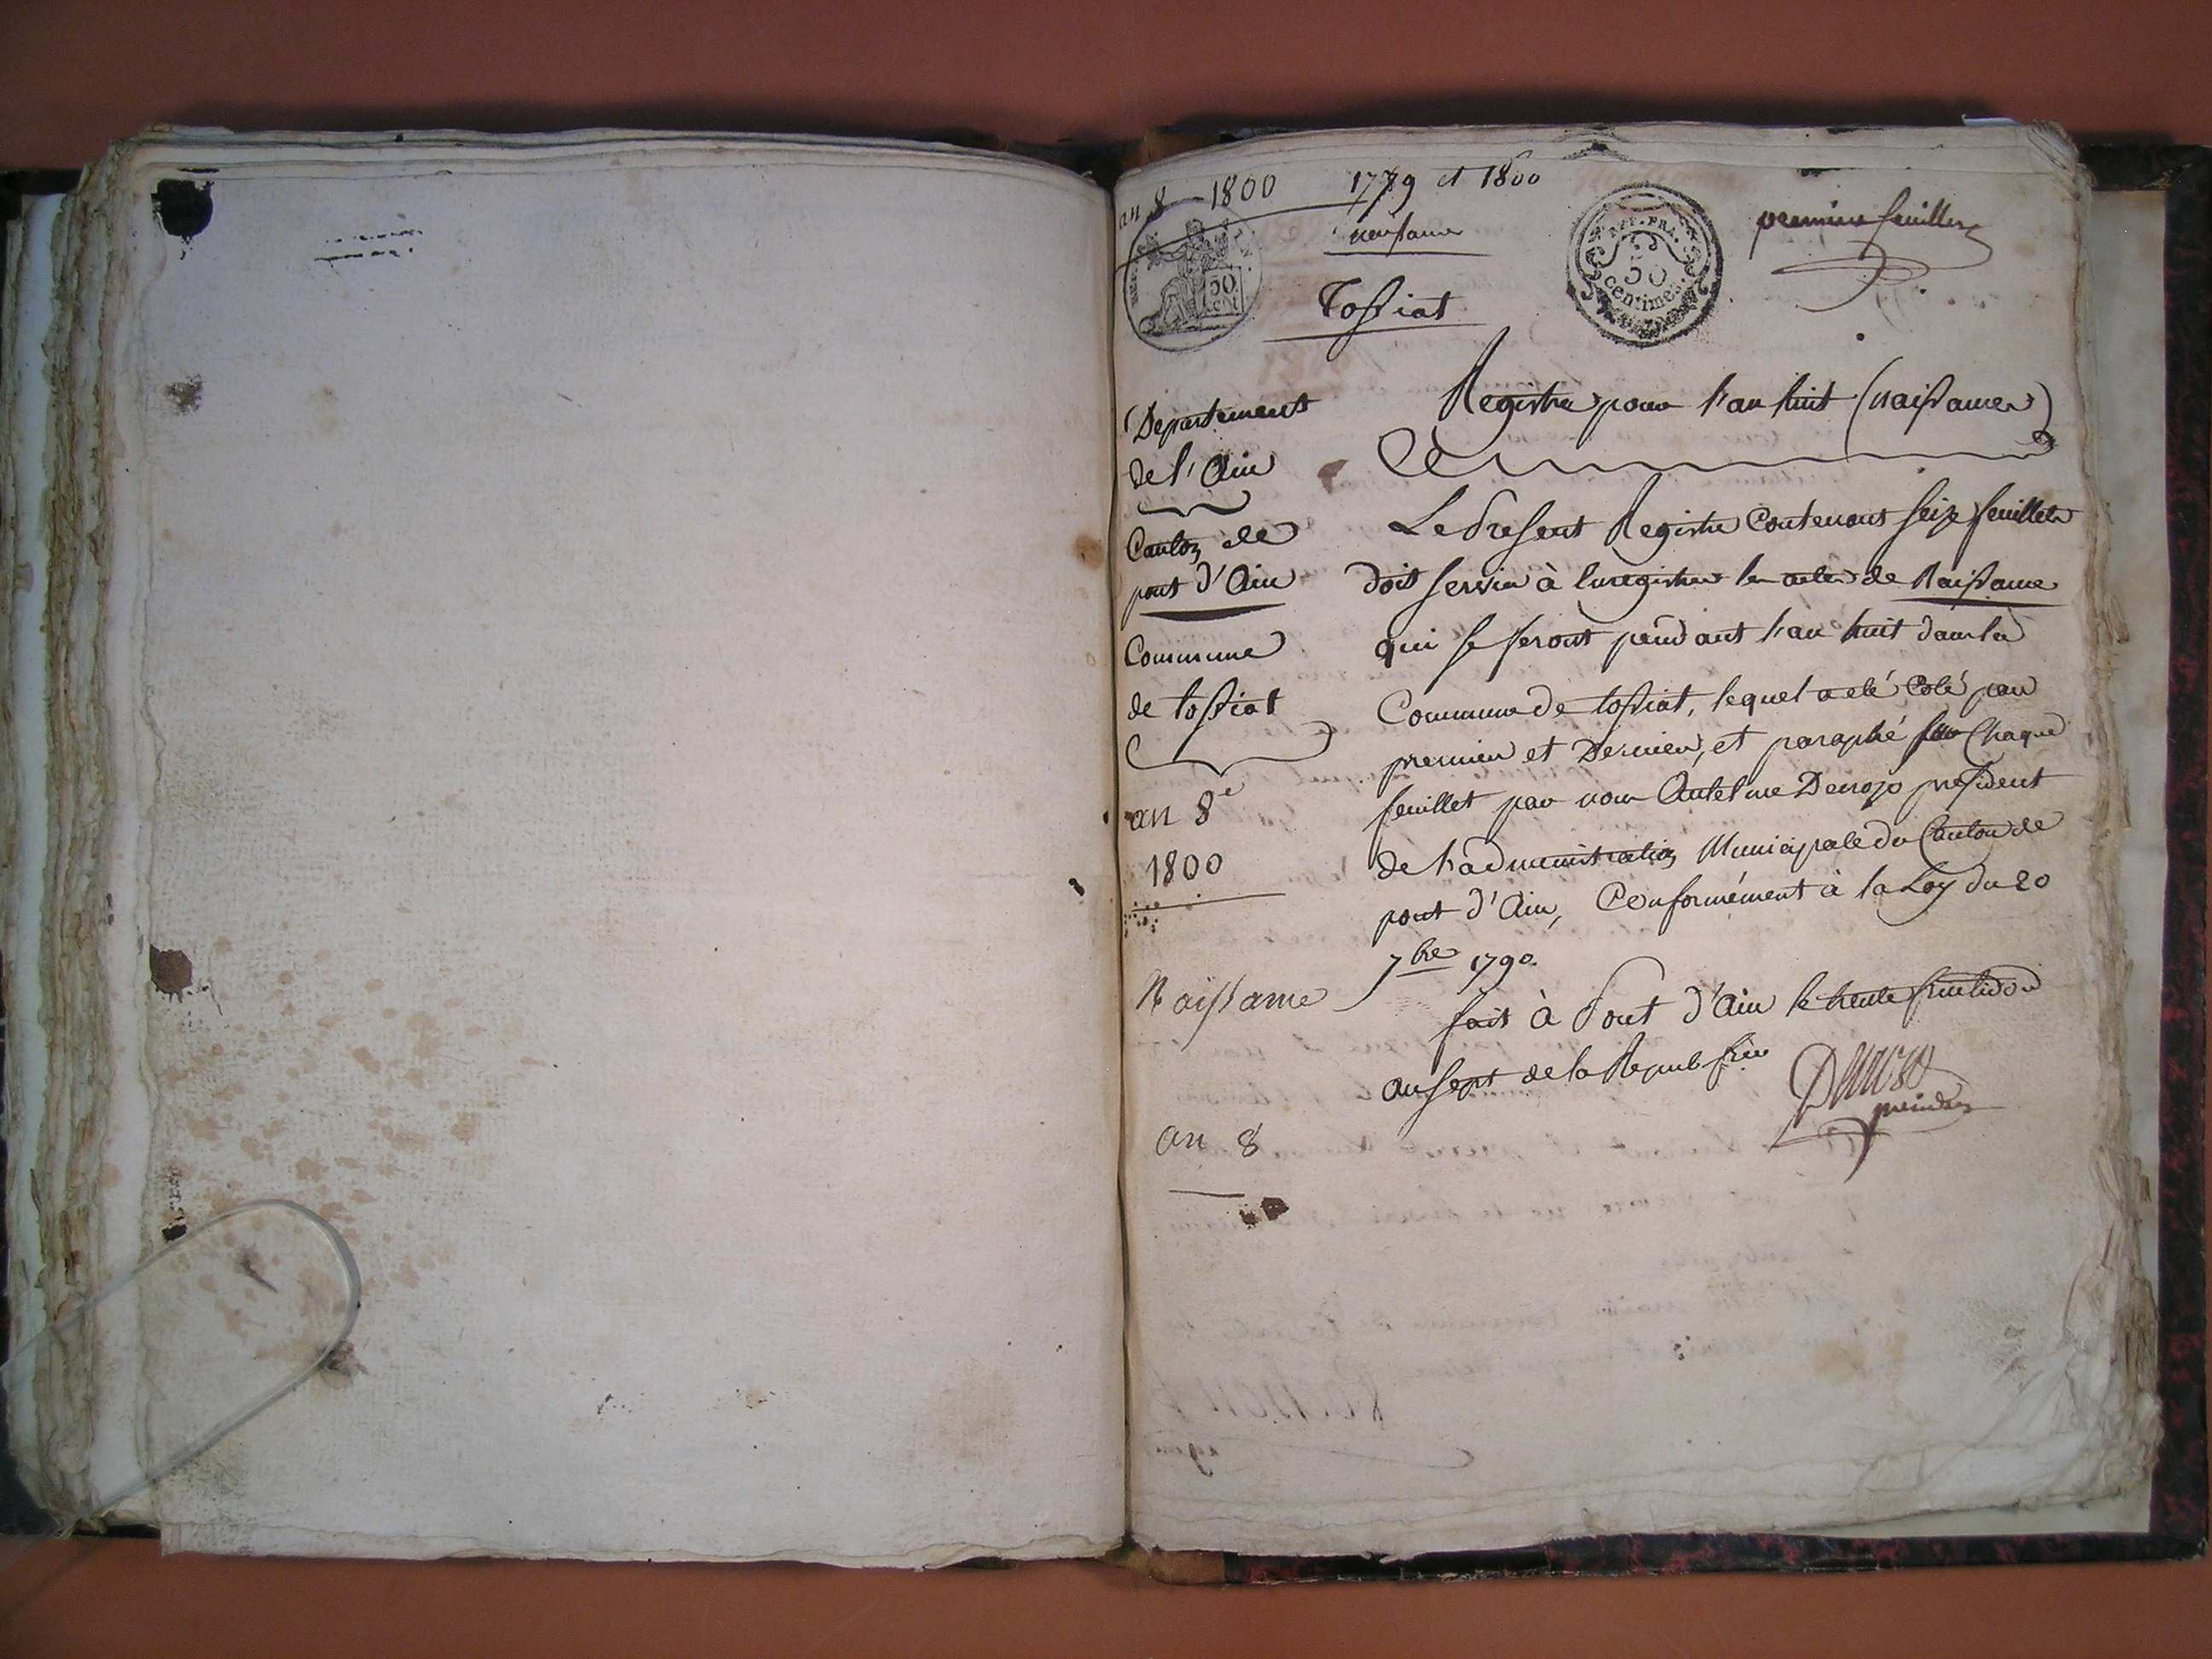 an 8 1800
1779 et 1800
naissance
Tossiat
REP. FRA.
50
centimes
50
CENT
premier feuillet
Departement
de l'Ain
Canton de
pont d'Ain
Commune
de tossiat
an 8e
1800
Naissance
an 8
Registre pour l'an huit (naissances)
Le Present Registre Contenant seize feuillets
doit servir à Enregistrer les actes de Naissance
qui se feront pendant l'an huit dans la
Commune de tossiat, lequel a eté Coté par
premier et Dernier, et paraphé sur Chaque
feuillet par nous Antelme président
de l'administration Municipale du Canton de
pont d'Ain, Conformément à la Loy du 20
7bre 1790
fait à Pont d'Ain le trente fructidor
an sept de la Repub